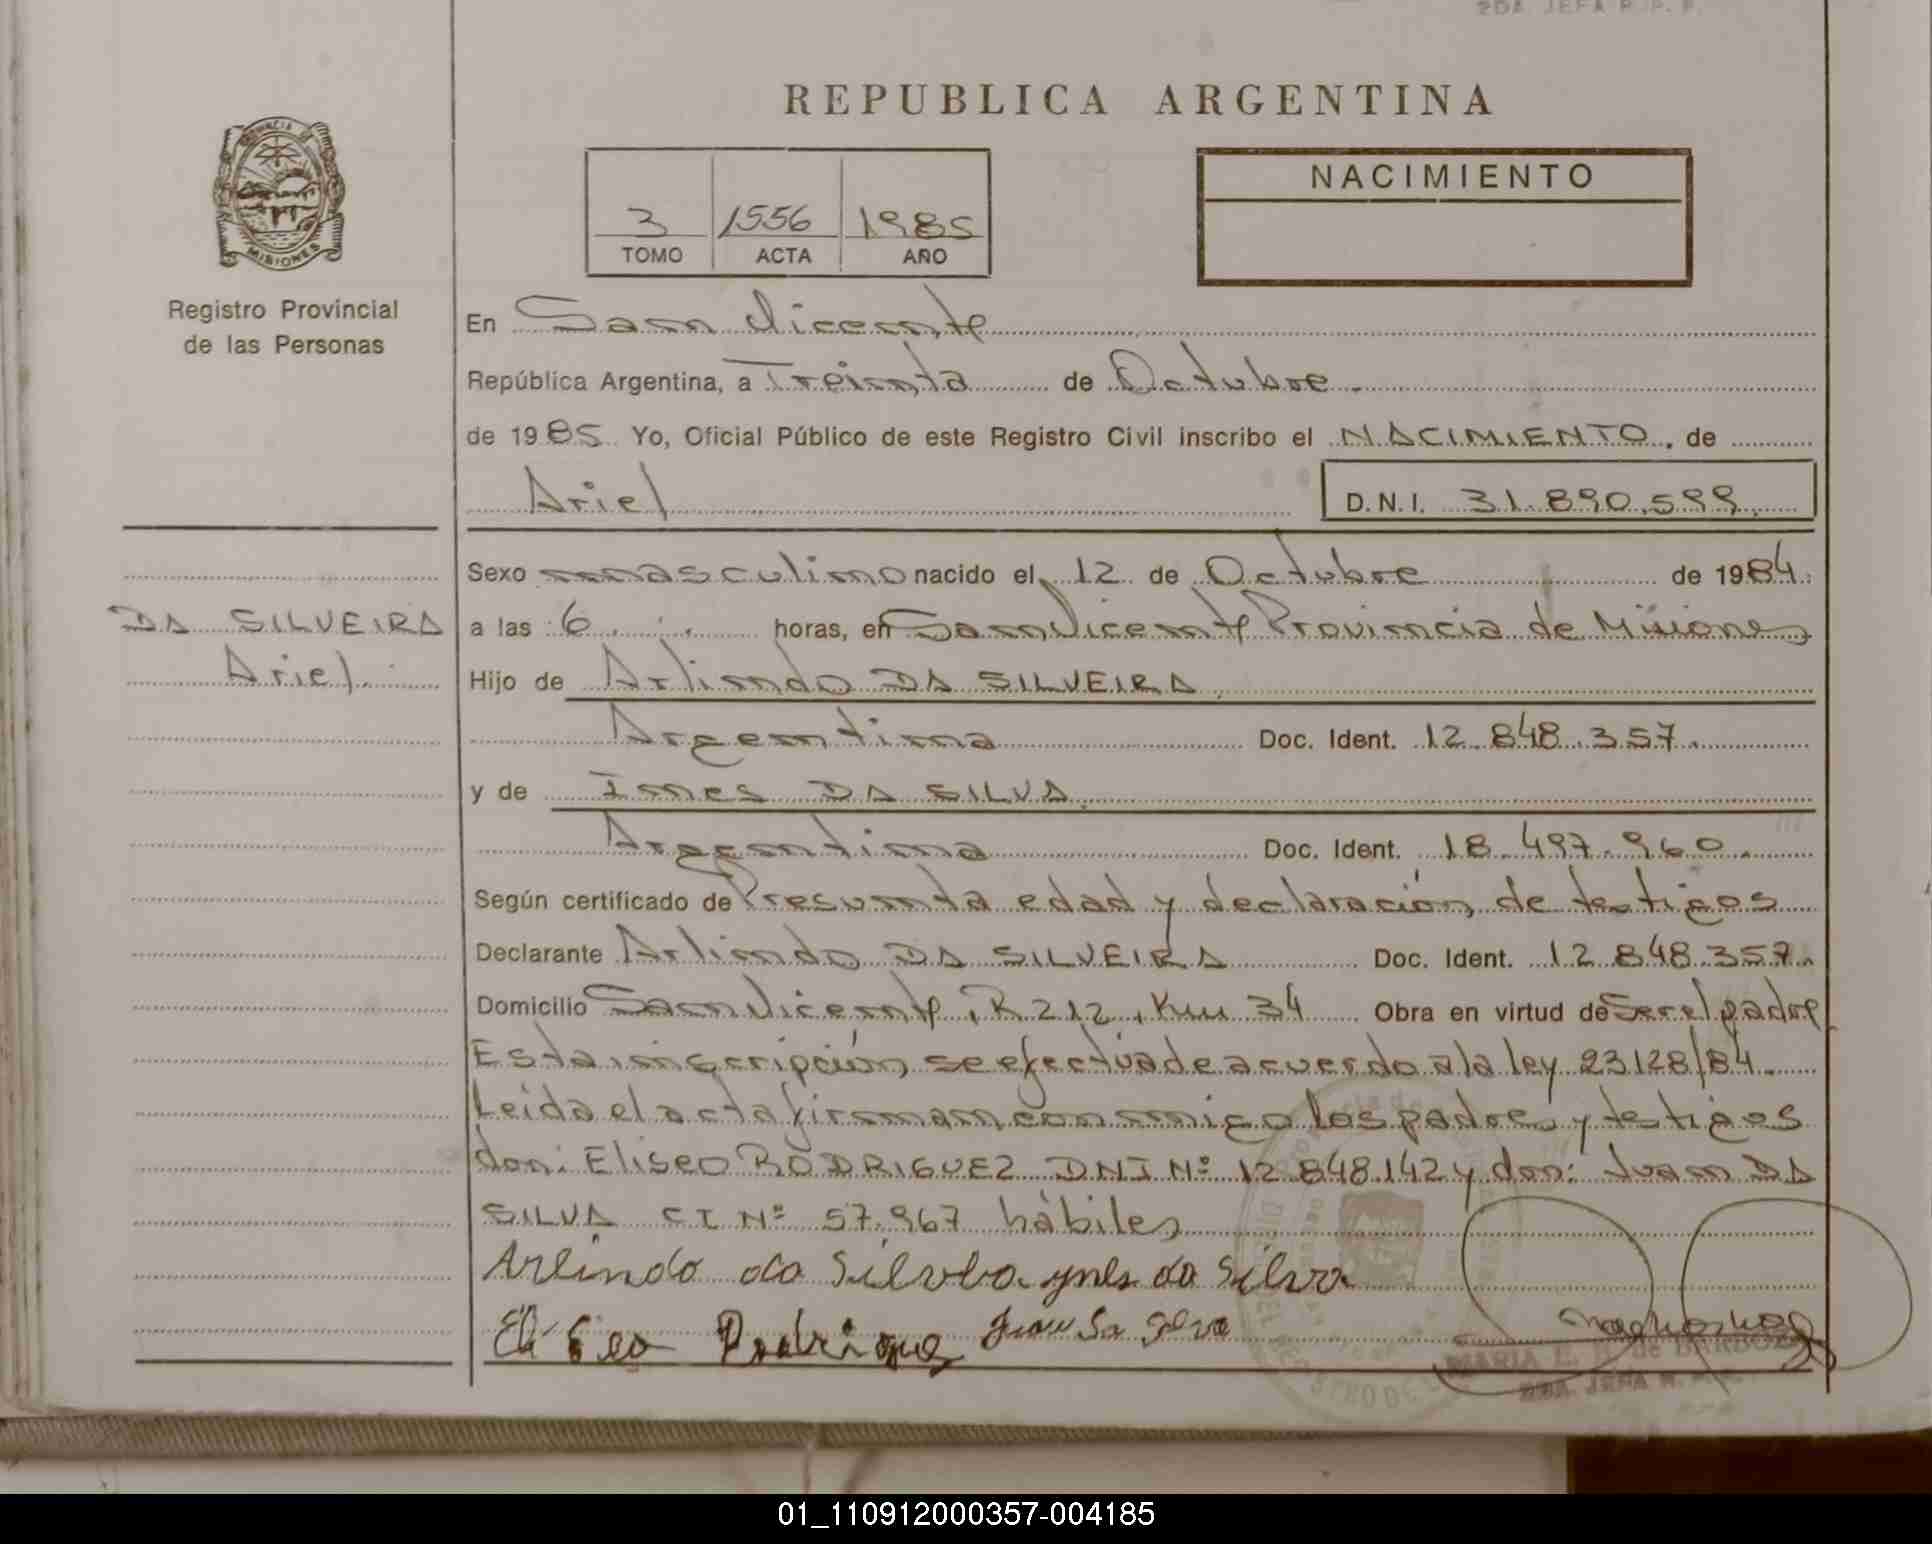 2DA. JEFA R. P. P.
REPUBLICA ARGENTINA
PROVINCIA DE
MISIONES
Registro Provincial
de las Personas
3 1556 1985
TOMO ACTA AÑO
NACIMIENTO
En San Vicente
República Argentina, a Treinta de Octubre.
de 1985 Yo, Oficial Público de este Registro Civil inscribo el NACIMIENTO, de
Ariel D.N.I. 31.890.599.
DA SILVEIRA
Ariel.
Sexo masculino nacido el 12 de Octubre de 1984.
a las 6 horas, en San Vicente Provincia de Misiones
Hijo de Arlindo DA SILVEIRA
Argentina Doc. Ident. 12.848.357.
y de Ines DA SILVA.
Argentina Doc. Ident. 18.497.960.
Según certificado de Presunta edad y declaración de testigos
Declarante Arlindo DA SILVEIRA Doc. Ident. 12.848.357.
Domicilio San Vicente, R 212, Km 34 Obra en virtud de Ser el padre
Esta inscripción se efectúa de acuerdo a la ley 23128/84.
Leida el acta firman conmigo los padres y testigos
don: Eliseo RODRIGUEZ DNI Nº 12.848.142 y don: Juan DA
SILVA CI Nº 57.967 hábiles
Arlindo da Silveira ynes da Silva
Eliseo Rodrigue Juan Da Silva
MARIA E. B. de BARBOZA
2DA. JEFA R. P. P.
01_110912000357-004185